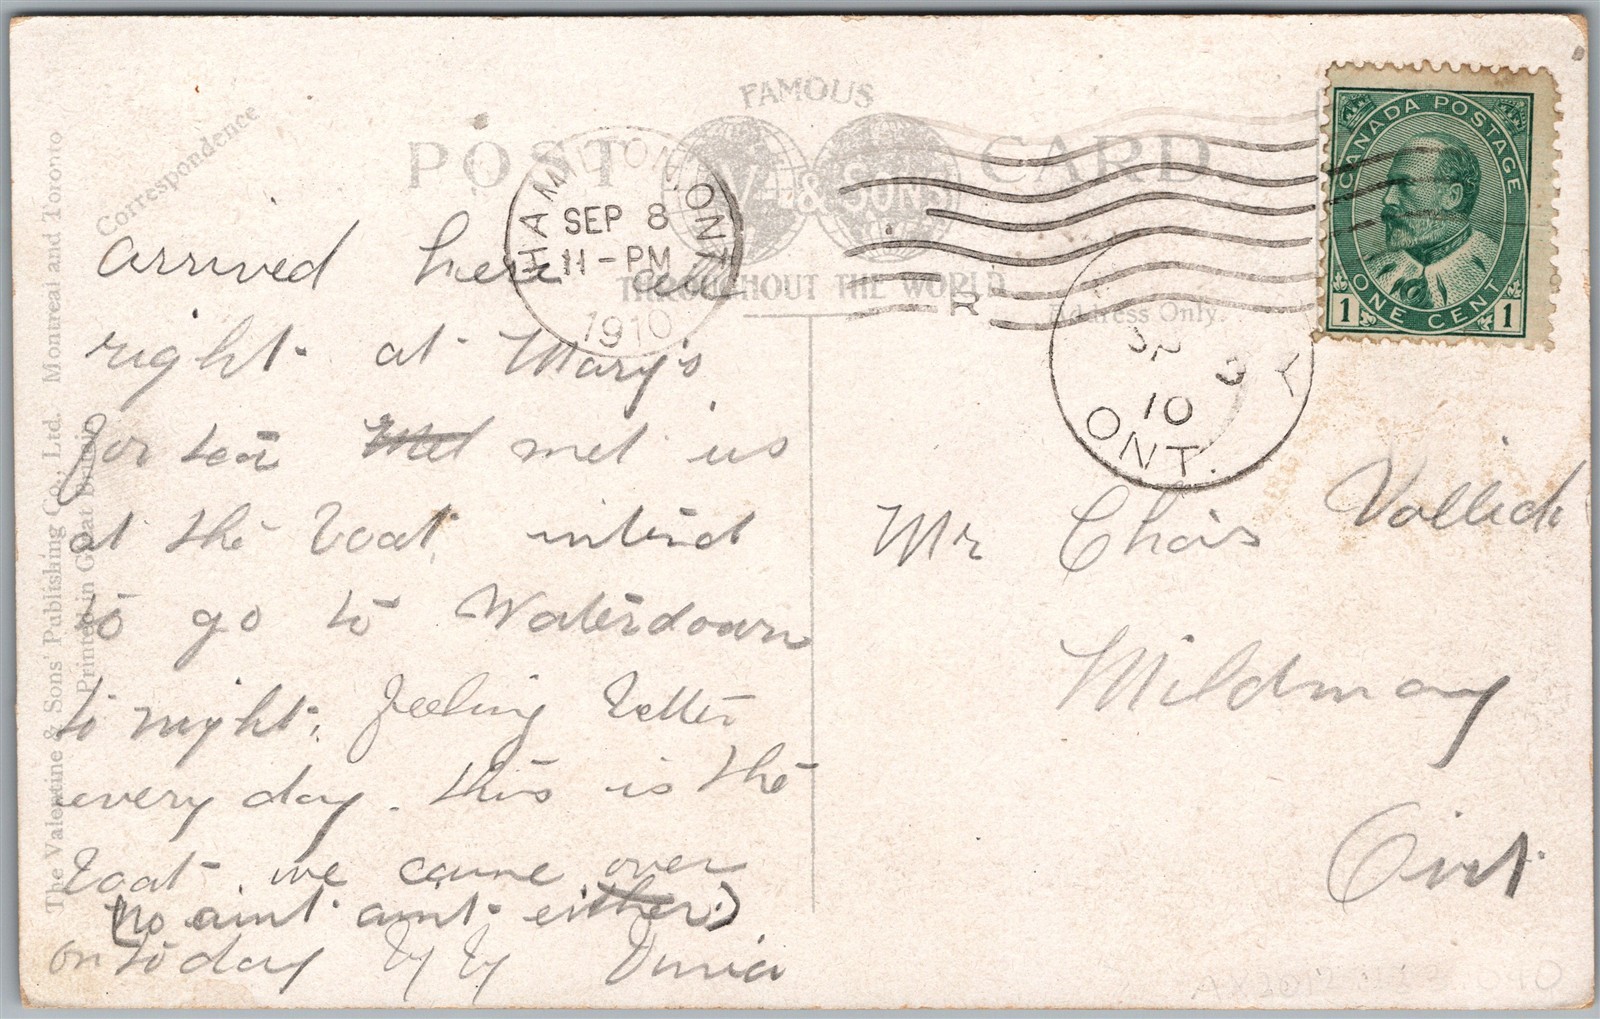 FAMOUS
POST CARD
V. & SONS
THROUGHOUT THE WORLD
Correspondence
Address Only.
HAMILTON, ONT.
SEP 8
11-PM
1910
R
10
ONT.
CANADA POSTAGE
1 ONE CENT 1
arrived here all
right at Mary's
for tea Met met us
at the boat, intend
to go to Waterdown
to night, feeling better
every day. this is the
boat we came over
(no aint aint either)
on to day By By
Mr Chas
Mildmay
Ont.
The Valentine & Sons' Publishing Co., Ltd. Montreal and Toronto
Printed in Great Britain